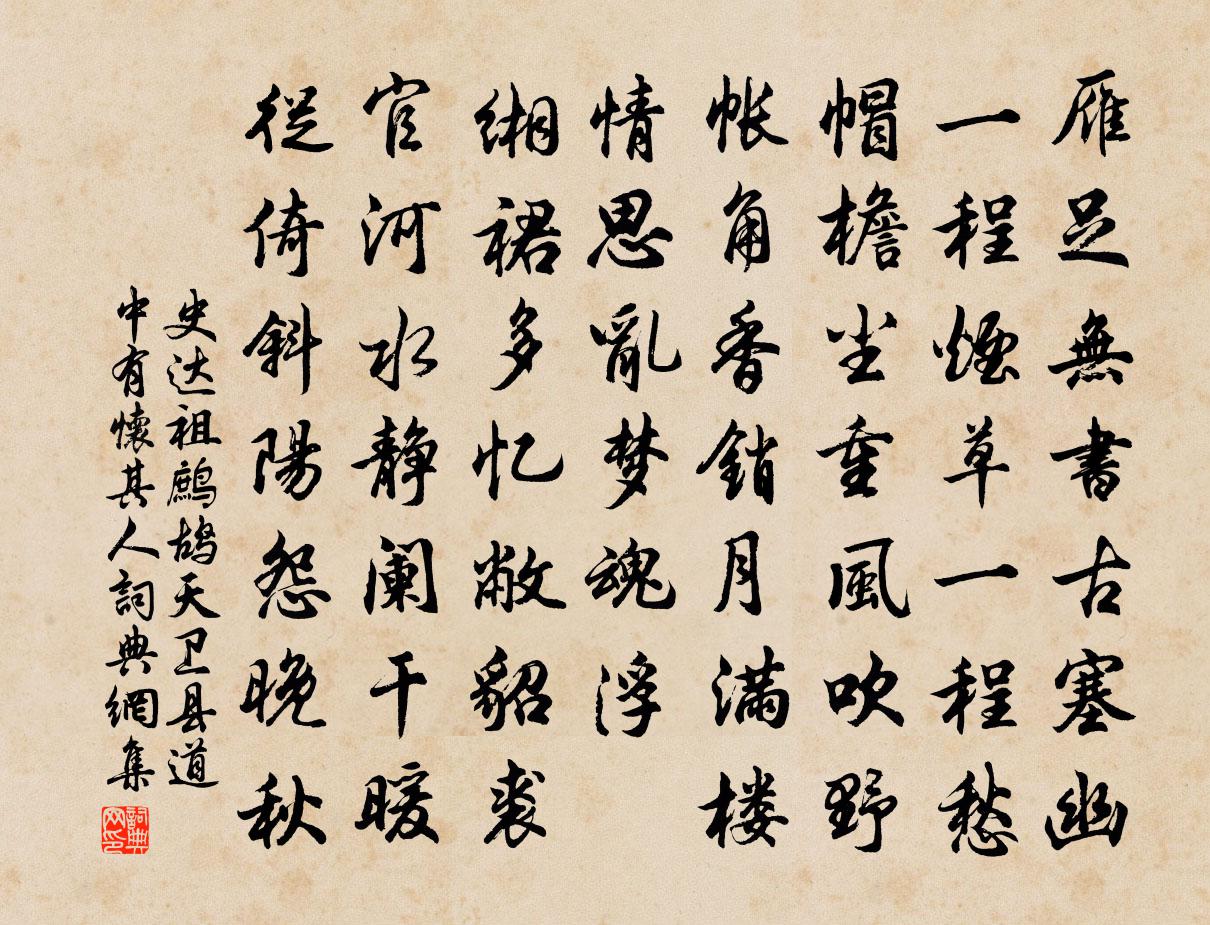 雁足無書古塞幽
一程煙草一程愁
帽檐尘重風吹野
帐角香銷月满楼
情思亂梦魂浮
缃裙多忆敝貂裘
官河水静阑干暖
徙倚斜陽怨晚秋
史达祖鹧鸪天卫县道
中有懷其人詞典網集
詞典
网印